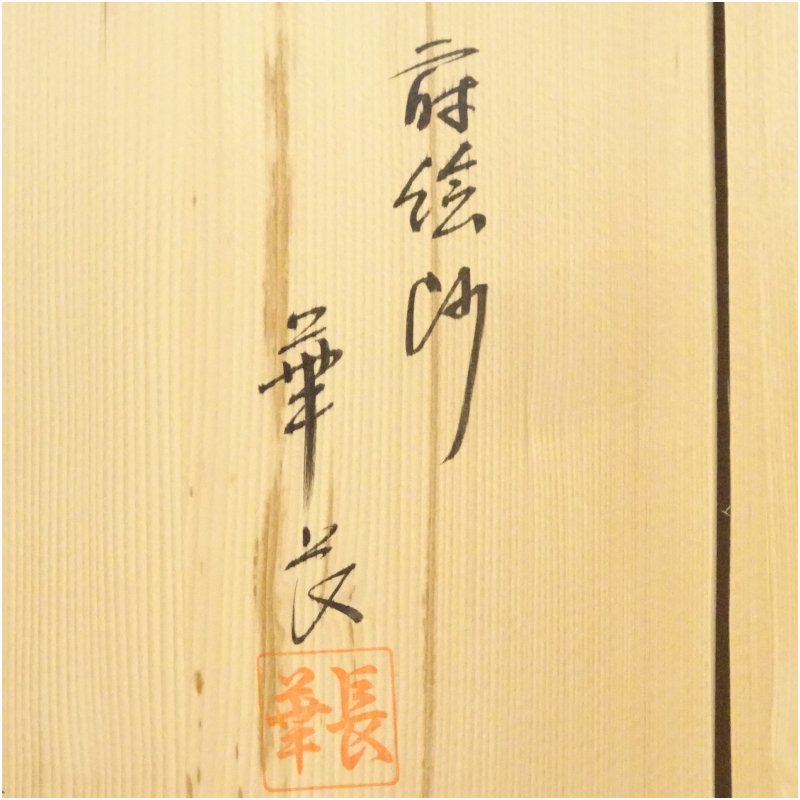 蒔絵師
華長
華長